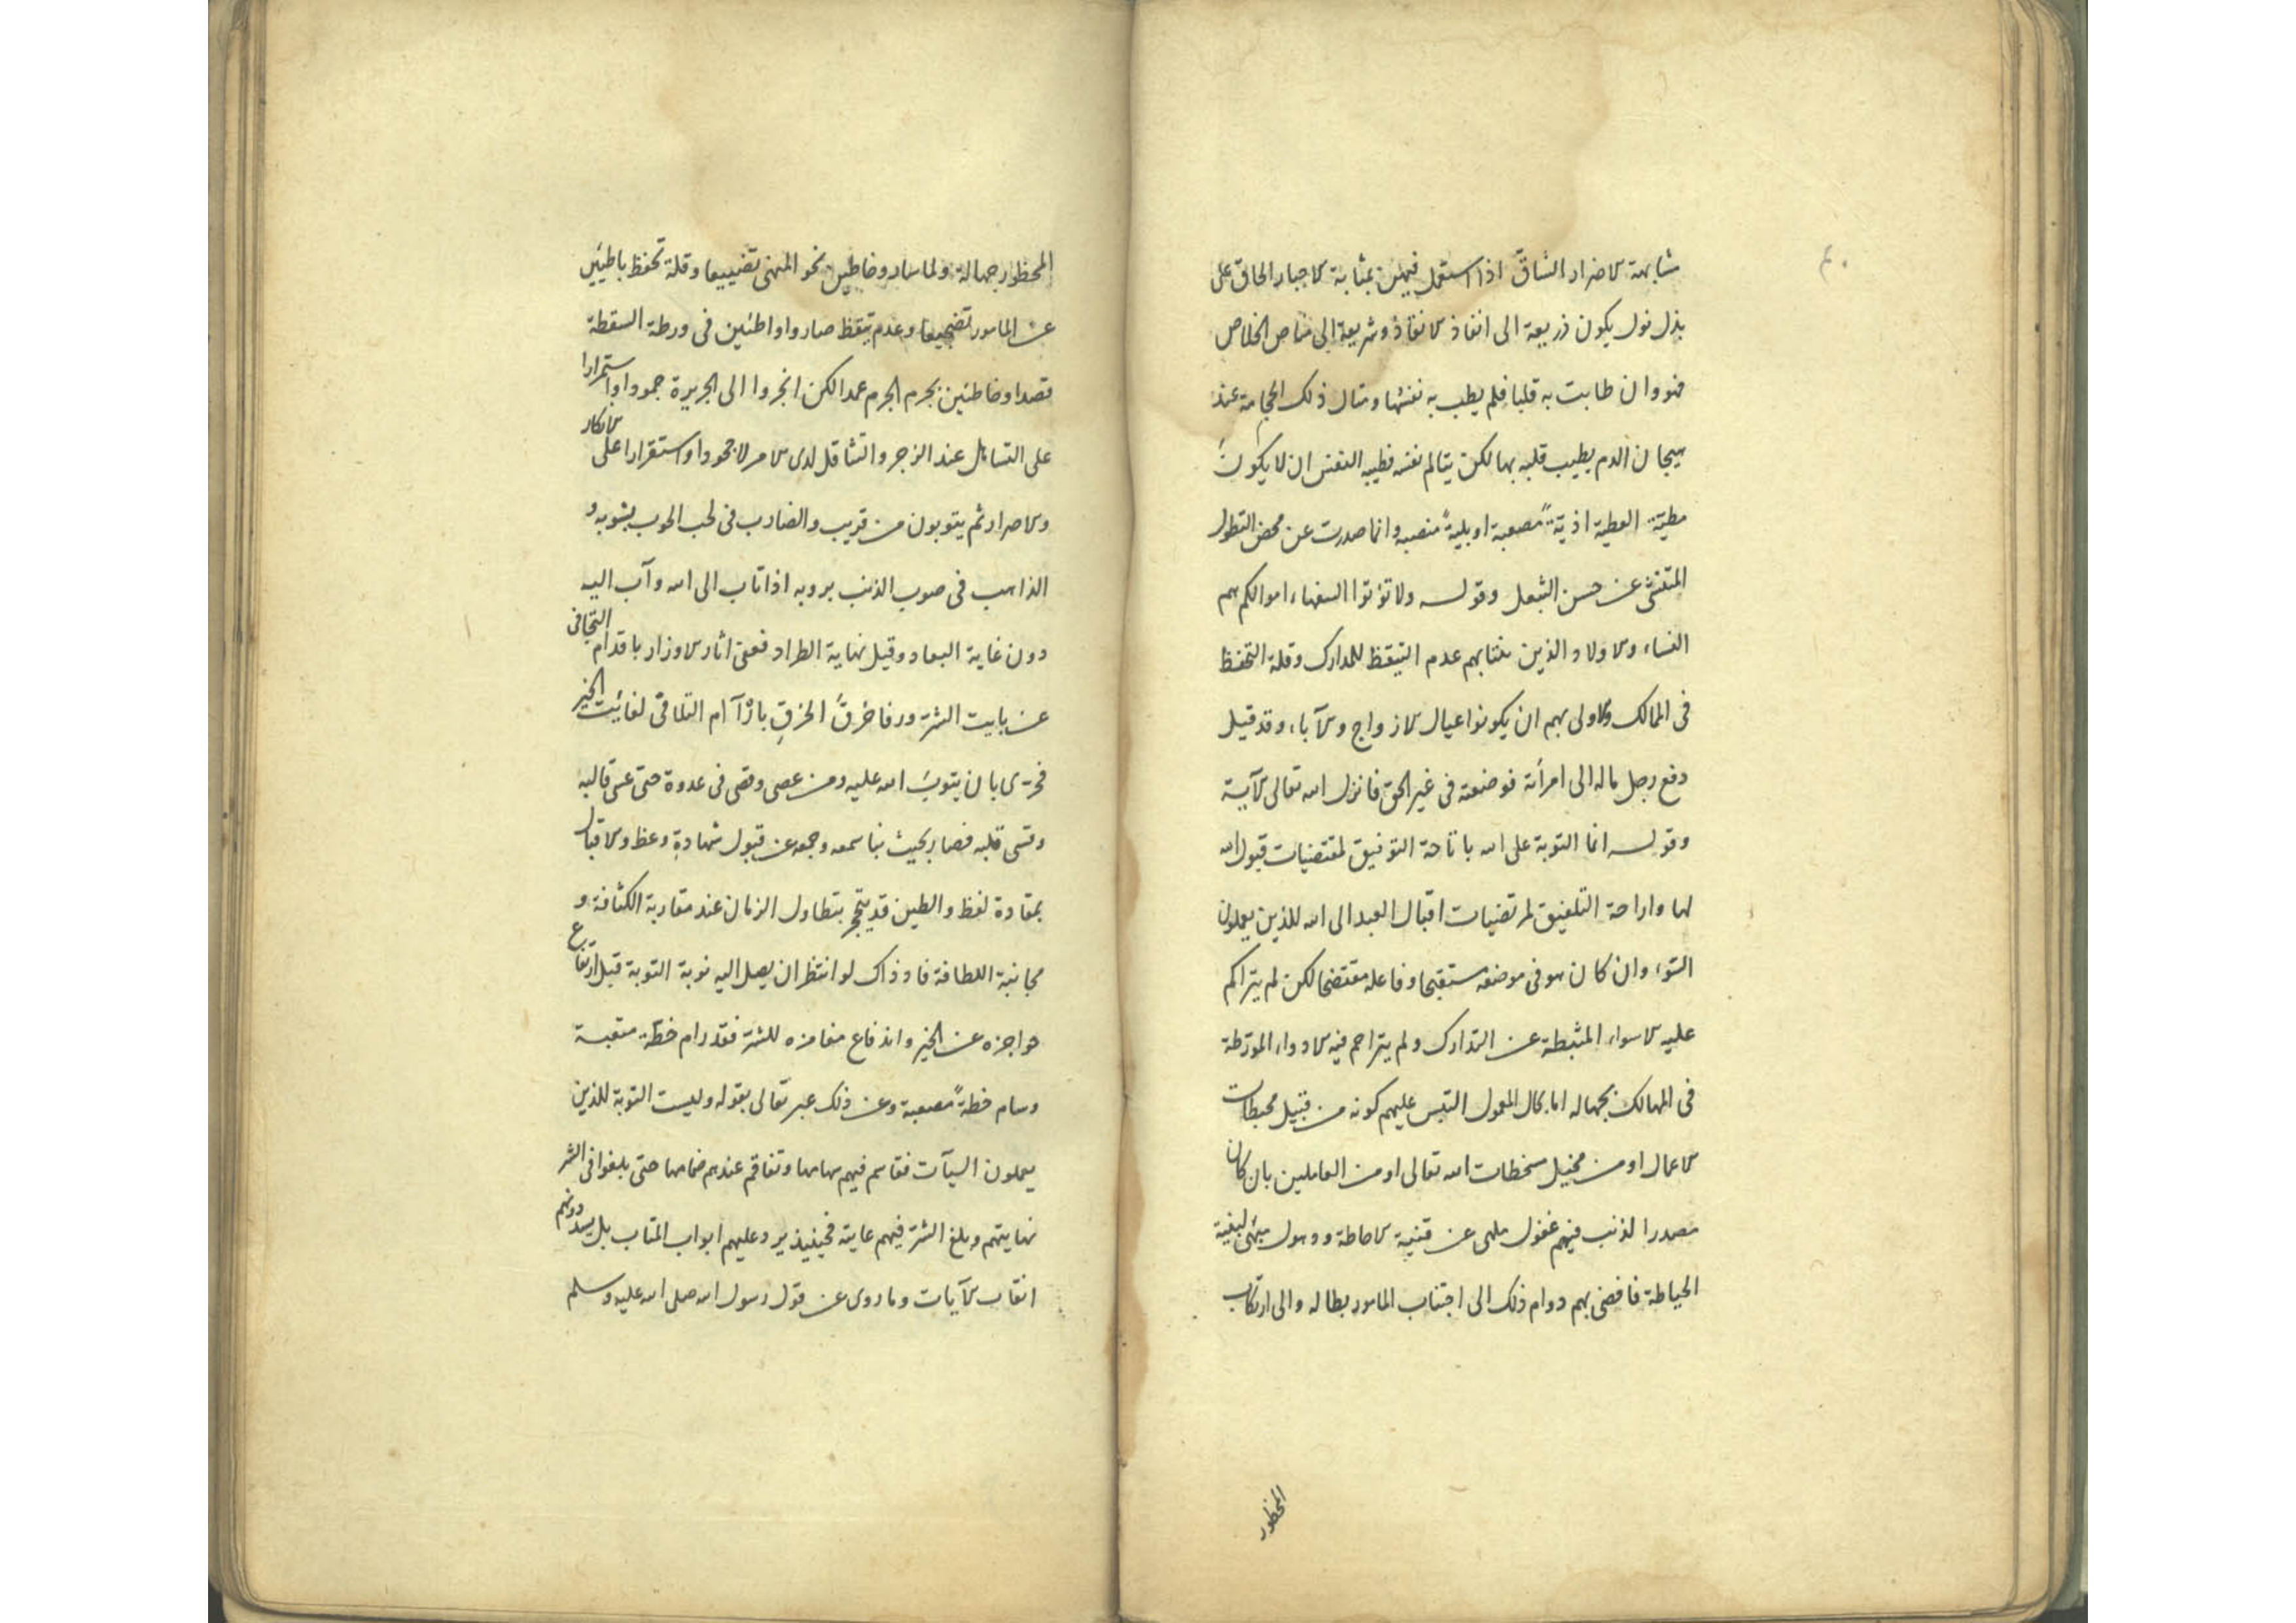 شابهة الاضرار الشاق اذا استعمل فيهن بمثابة الاجبار الحاق على
بذل نول يكون ذريعة الى انفاذ الانفاذ وشريعة الى مناص الخلاص
فهو وان طابت به قلبا فلم يطب به نفسها ومثال ذلك الحجامة عند
هيجان الدم يطيب قلبه بها لكن يتالم نفسه فطيبه النفس ان لا يكون
مطية العطية اذية مصعبة او بلية منصبه وانما صدرت عن محض التطول
عن حسن وقوله ولا تؤتوا السفهاء اموالكم هم
النساء والاولاد الذين عدم التيقظ للمدارك وقلة التحفظ
فى الممالك والاولى بهم ان يكونوا عيال الازواج والآباء وقد قيل
دفع رجل ماله الى امرأته فوضعته فى غير الحق فانزل الله تعالى الآية
وقوله انما التوبة على الله باتاحة التوفيق لمقتضيات قبول الله
لها واراحة التلفيق لمرتضيات اقبال العبد الى الله للذين يعملون
السوء وان كان هو فى موضعه مستقبحا وفاعله مفتضحا لكن لم يتراكم
عليه الاسواء المثبطة عن التدارك ولم يتزاحم فيه الادواء المورطة
فى المهالك بجهالة اما بحال المعمول التبس عليهم كونه من قبيل محبطات
الاعمال او من مخيل مسخطات الله تعالى او من العاملين بان كان
مصدر الذنب فيهم غفول ملهى عن قنية الاحاطة وذهول لبغية
الحياطة فافضى بهم دوام ذلك الى اجتناب المامور بطالة والى ارتكاب
المحظور
المحظور جهالة ولما ساروا خاطين نحو المنهى تضييعا وقلة تحفظ باطئين
عن المامور تضجيعا وعدم تيقظ صاروا واطئين فى ورطة السقطة
قصدا وخاطئين بجرم الجرم عمدا لكن انجروا الى الجريرة جمودا واستمرارا
على التساهل عند الزجر والتثاقل لدى الامر لا جحودا واستقرارا على الانكار
والاصرار ثم يتوبون من قريب والضارب فى لحب الحوب بشوبه و
الذاهب فى صوب الذنب بروبه اذا تاب الى الله وآب اليه
دون غاية البعاد وقبل نهاية الطراد فعفى اثار الاوزار باقدام التجافى
عن بايت الشر ورفا خرق الخرق التلافى لفائت الخير
فحرى بان يتوب الله عليه ومن عصى وقصى فى عدوه حتى عسى قالبه
وقسى قلبه فصار بحيث نبا سمعه وجمعه عن قبول شهادة وعظ والاقبال
بمقادة لفظ والطين قد يتحجر بتطاول الزمان عند مقاربة الكثافة و
مجانبة اللطافة فاذ ذاك لو انتظر ان يصل اليه نوبة التوبة قبل ارتفاع
حواجزه عن الخير واندفاع مغامزه للشر فقد رام خطة متعبة
وسام خطة مصعبة وعن ذلك عبر تعالى بقوله وليست التوبة للذين
يعملون السيآت فقاسم فيهم سهامها وتفاقم عندهم حتى بلغوا فى الشر
نهايتهم وبلغ الشر فيهم غايته فحينئذ يرد عليهم ابواب المتاب بل يسد دونهم
انقاب الآيات وما روى عن قول رسول الله صلى الله عليه وسلم